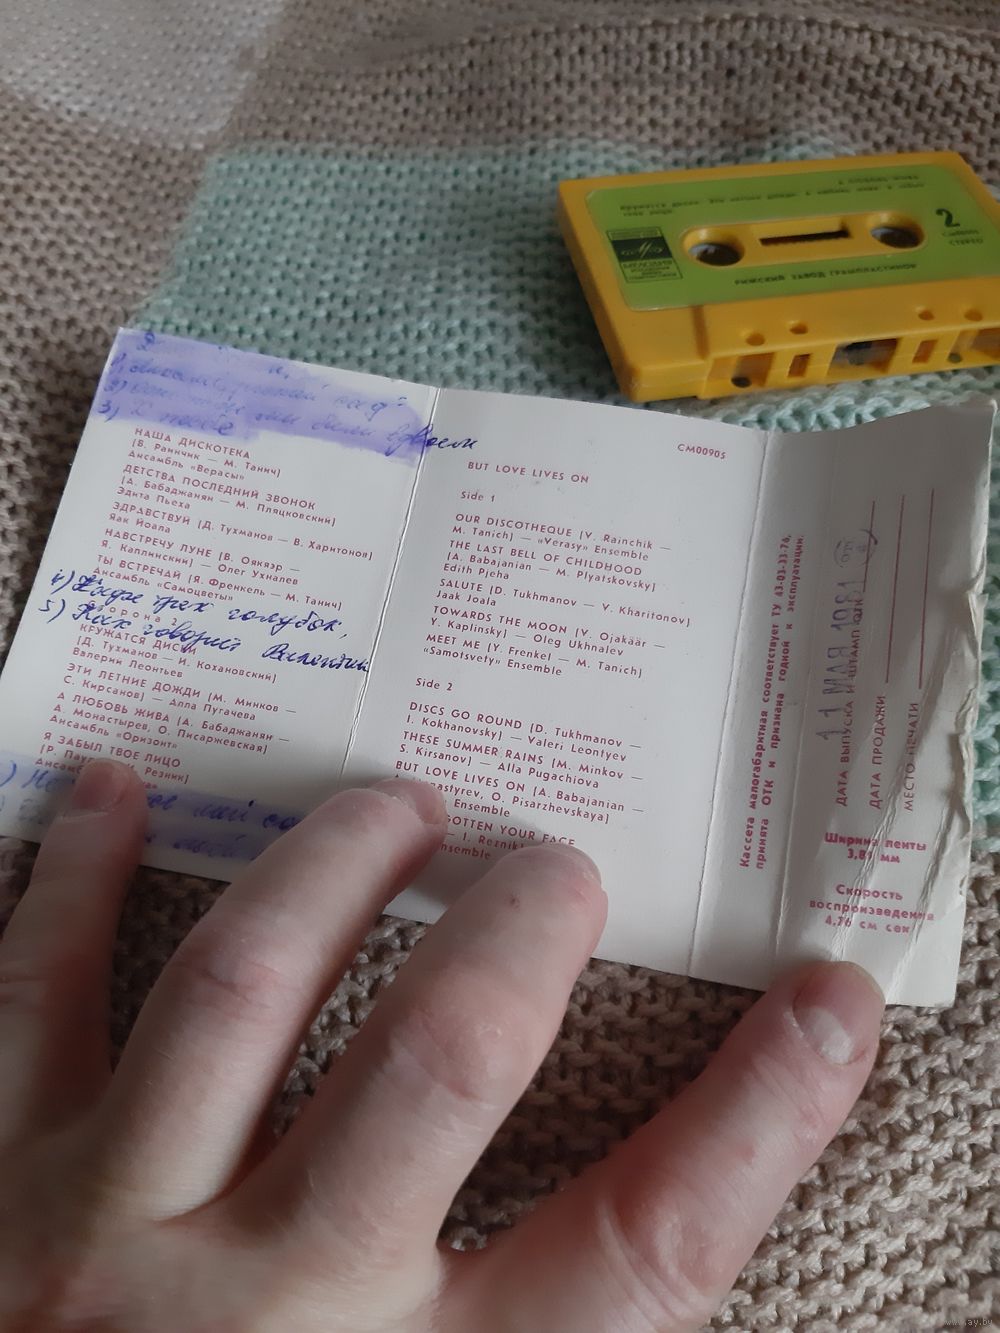 НАША ДИСКОТЕКА
(В. Раинчик — М. Танич)
Ансамбль «Верасы»
ДЕТСТВА ПОСЛЕДНИЙ ЗВОНОК
(А. Бабаджанян — М. Пляцковский)
Эдита Пьеха
ЗДРАВСТВУЙ (Д. Тухманов — В. Харитонов)
Яак Йоала
НАВСТРЕЧУ ЛУНЕ (В. Оякяэр —
Я. Каплинский) — Олег Ухналев
ТЫ ВСТРЕЧАЙ (Я. Френкель — М. Танич)
Ансамбль «Самоцветы»
4)
голубок,
5) Как говорит
КРУЖАТСЯ ДИСКИ
(Д. Тухманов — И. Кохановский)
Валерий Леонтьев
ЭТИ ЛЕТНИЕ ДОЖДИ (М. Минков —
С. Кирсанов) — Алла Пугачева
А ЛЮБОВЬ ЖИВА (А. Бабаджанян —
А. Монастырев, О. Писаржевская)
Ансамбль «Оризонт»
Я ЗАБЫЛ ТВОЕ ЛИЦО
Резник)
СМ00905
BUT LOVE LIVES ON
Side 1
OUR DISCOTHEQUE (V. Rainchik —
M. Tanich) — «Verasy» Ensemble
THE LAST BELL OF CHILDHOOD
(A. Babajanian — M. Plyatskovsky)
Edith Pjeha
SALUTE (D. Tukhmanov — V. Kharitonov)
Jaak Joala
TOWARDS THE MOON (V. Ojakäär —
Y. Kaplinsky) — Oleg Ukhnalev
MEET ME (Y. Frenkel — M. Tanich)
«Samotsvety» Ensemble
Side 2
DISCS GO ROUND (D. Tukhmanov —
I. Kokhanovsky) — Valeri Leontyev
THESE SUMMER RAINS (M. Minkov —
S. Kirsanov) — Alla Pugachiova
BUT LOVE LIVES ON (A. Babajanian —
O. Pisarzhevskaya)
Ensemble
YOUR FACE
— I.
Кассета малогабаритная соответствует ТУ 43-03-33-76,
принята ОТК и признана годной к эксплуатации.
11 МАЯ 1981
ДАТА ВЫПУСКА И ШТАМП ОТК
ДАТА ПРОДАЖИ
МЕСТО ПЕЧАТИ
Ширина ленты
3,81 мм
Скорость
воспроизведения
4,76 см сек
2
СТЕРЕО
МЕЛОДИЯ
РИЖСКИЙ ЗАВОД ГРАМПЛАСТИНОК
www.ay.by